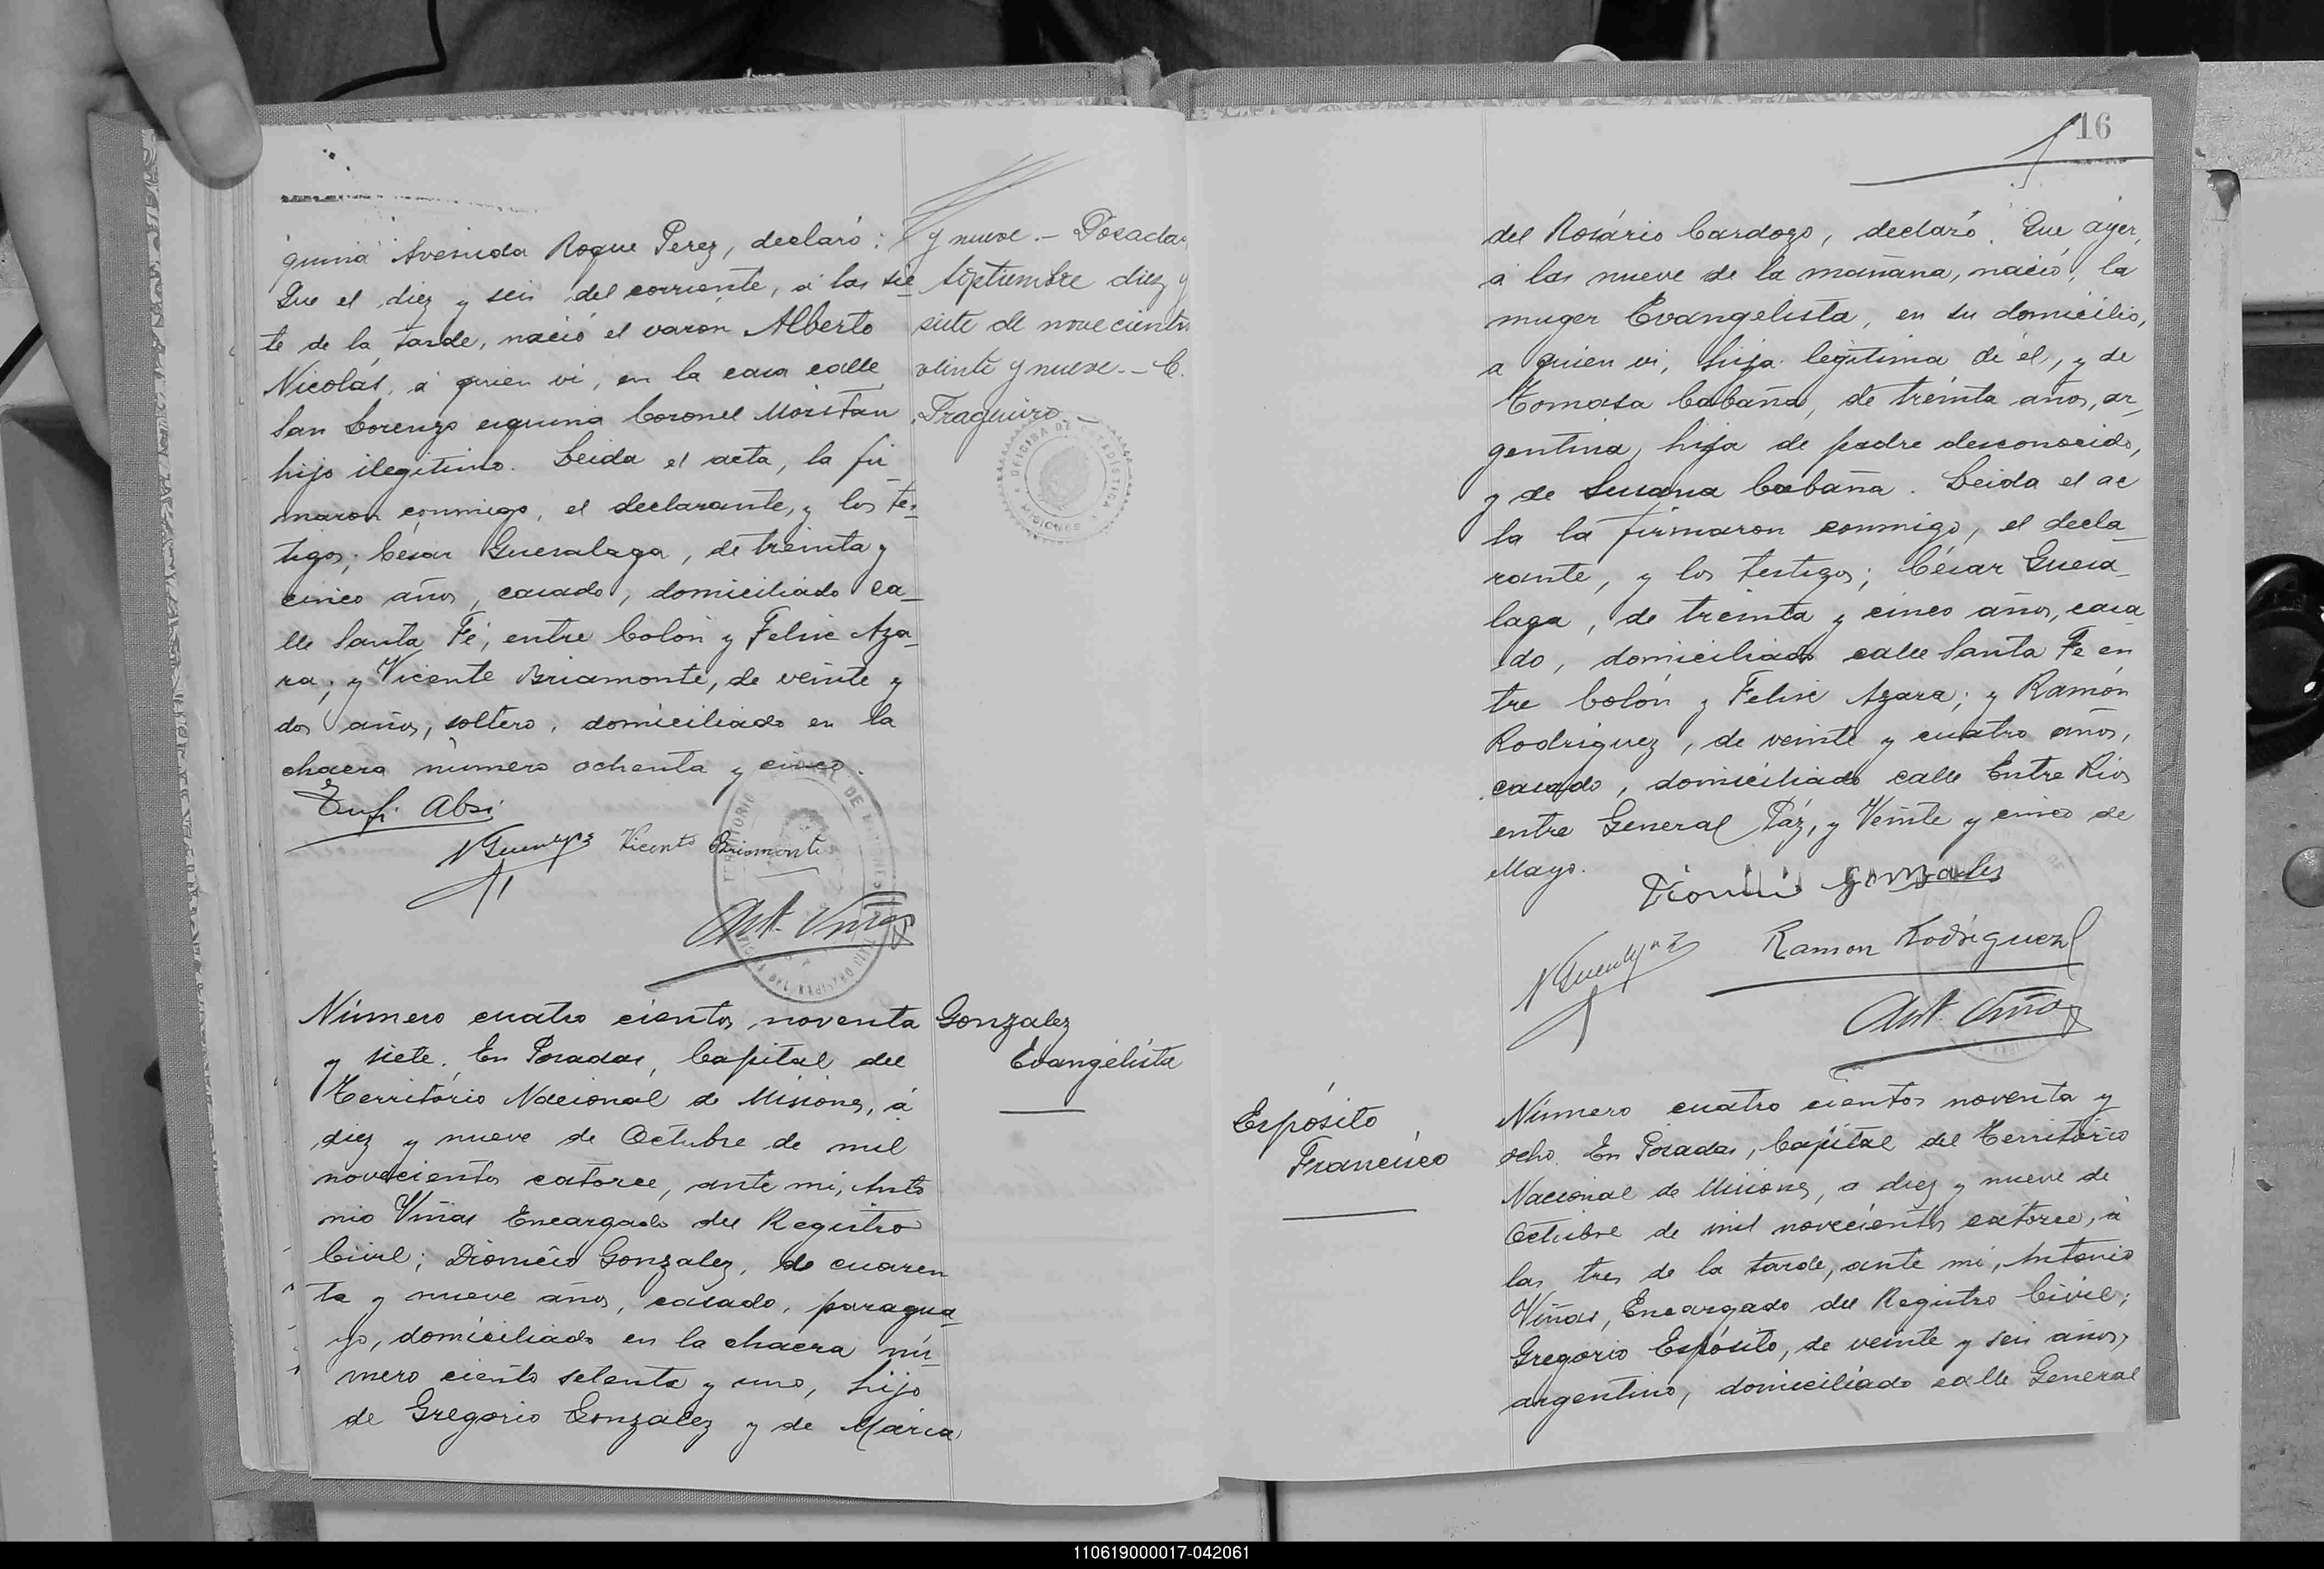 quina Avenida Roque Perez, declaró:
Que el diez y seis del corriente, á las sie
te de la tarde, nació el varon Alberto
Nicolás, á quien vi, en la casa calle
San Lorenzo esquina Coronel Moritan
hijo ilegitimo. Leida el acta, la fir
maron conmigo, el declarante, y los tes-
tigos; César Guesalaga, de treinta y
cinco años, casado, domiciliado ca-
lle Santa Fé, entre Colón y Felix Aza-
ra; y Vicente Briamonte, de veinte y
dos años, soltero, domiciliado en la
chacra número ochenta y cinco.
Absi
Vicente Briamonte
Ant. Viñas
y nueve. - Posadas
Septiembre diez y
siete de novecientos
veinte y nueve. - C.
Fraqueiro -
OFICINA DE ESTADISTICA
MISIONES
Número cuatro cientos noventa
y siete. En Posadas, Capital del
Territorio Nacional de Misiones, á
diez y nueve de Octubre de mil
novecientos catorce, ante mi, Anto
nio Viñas Encargado del Registro
Civil; Dionicio Gonzalez, de cuaren
ta y nueve años, casado, paragua-
yo, domiciliado en la chacra nú-
mero ciento setenta y uno, hijo
de Gregorio Gonzalez y de Maria
Gonzalez
Evangelista
16
del Rosário Cardozo, declaró. Que ayer,
á las nueve de la mañana, nació, la
muger Evangelista, en su domicilio,
a quien vi, hija legitima de él, y de
Tomasa Cabaña, de treinta años, ar-
gentina, hija de padre desconocido,
y de Susana Cabaña. Leida el ac
ta la firmaron conmigo, el decla-
rante, y los testigos; César Guesa-
laga, de treinta y cinco años, casa
do, domiciliado calle Santa Fé en
tre Colón y Felix Azara; y Ramón
Rodriguez, de veinte y cuatro años,
casado, domiciliado calle Entre Rios
entre General Páz, y Veinte y cinco de
Mayo.
Gonzales
Ramon Rodriguez
Ant. Viñas
Espósito
Francisco
Número cuatro cientos noventa y
ocho. En Posadas, Capital del Territorio
Nacional de Misiones, a diez y nueve de
Octubre de mil novecientos catorce, á
las tres de la tarde, ante mi, Antonio
Viñas, Encargado del Registro Civil;
Gregorio Espósito, de veinte y seis años,
argentino, domiciliado calle General
110619000017-042061